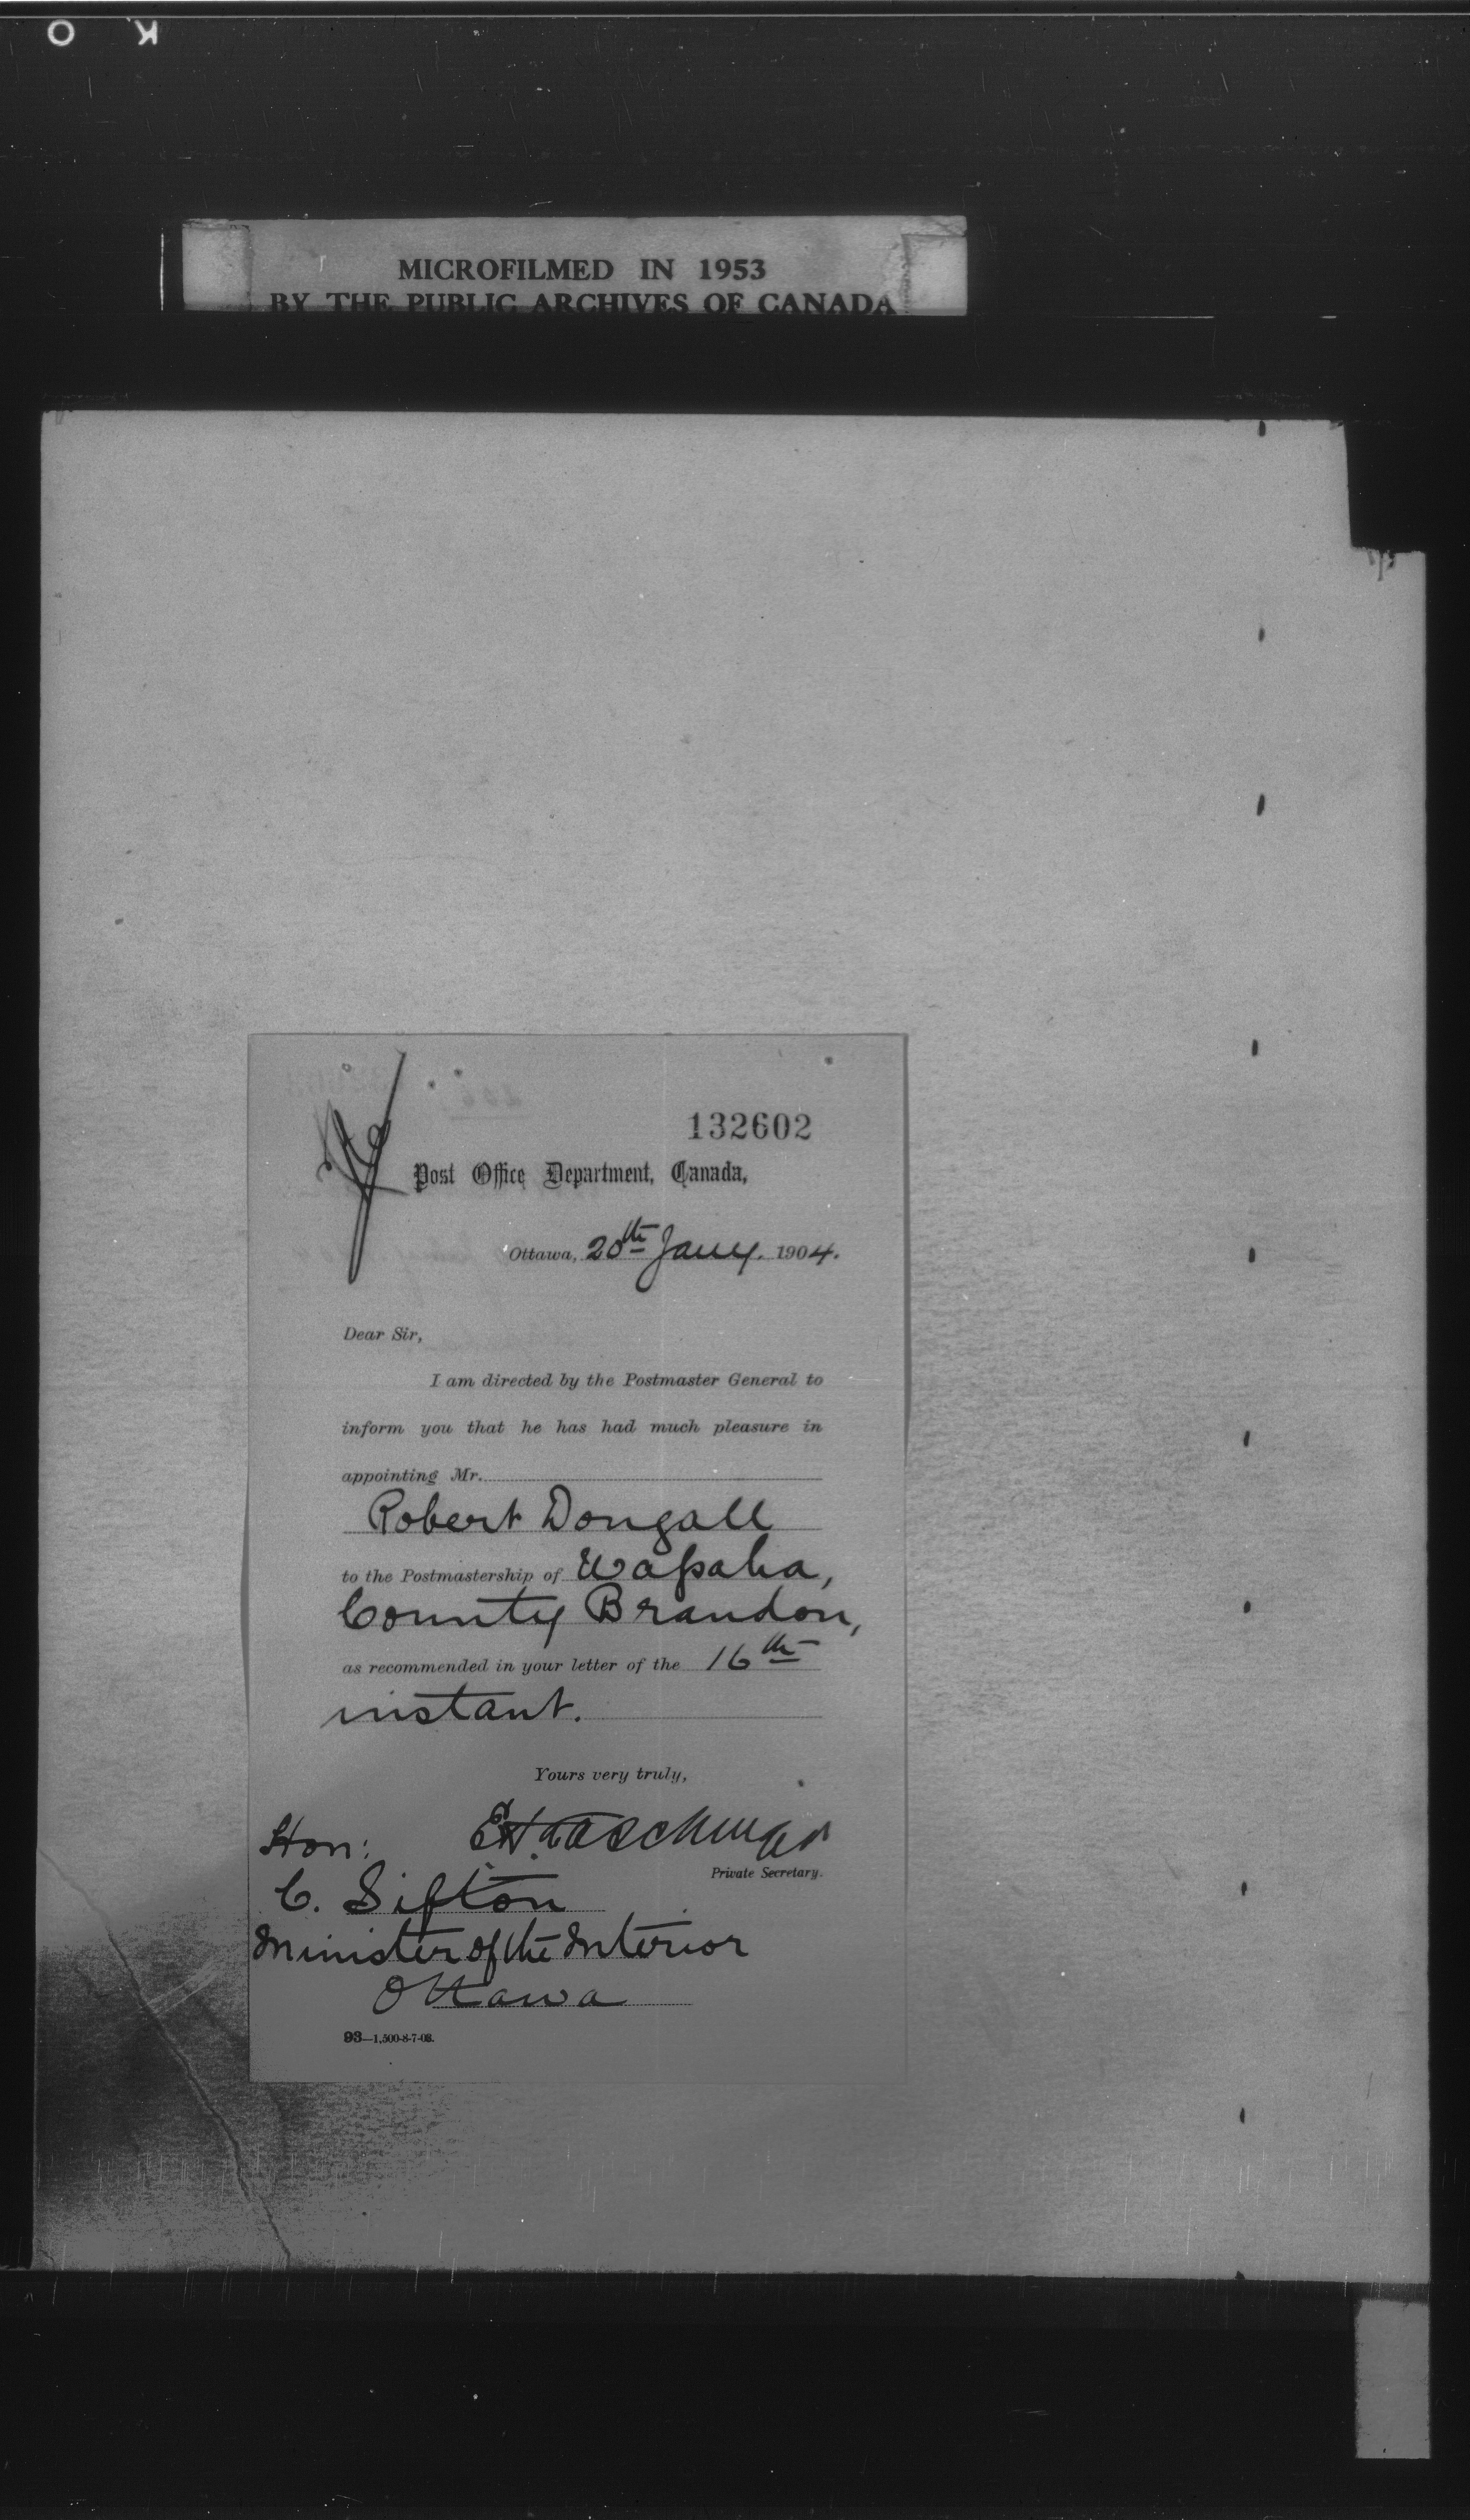 O K
MICROFILMED IN 1953
BY THE PUBLIC ARCHIVES OF CANADA
132602
Post Office Department, Canada,
Ottawa, 20th Jany. 1904.
Dear Sir,
I am directed by the Postmaster General to
inform you that he has had much pleasure in
appointing Mr.
Robert Dongall
to the Postmastership of Wapaha,
County Brandon,
as recommended in your letter of the 16th
instant.
Yours very truly,
Hon:
Private Secretary.
C. Sifton
Minister of the Interior
Ottawa
93—1,500-8-7-03.